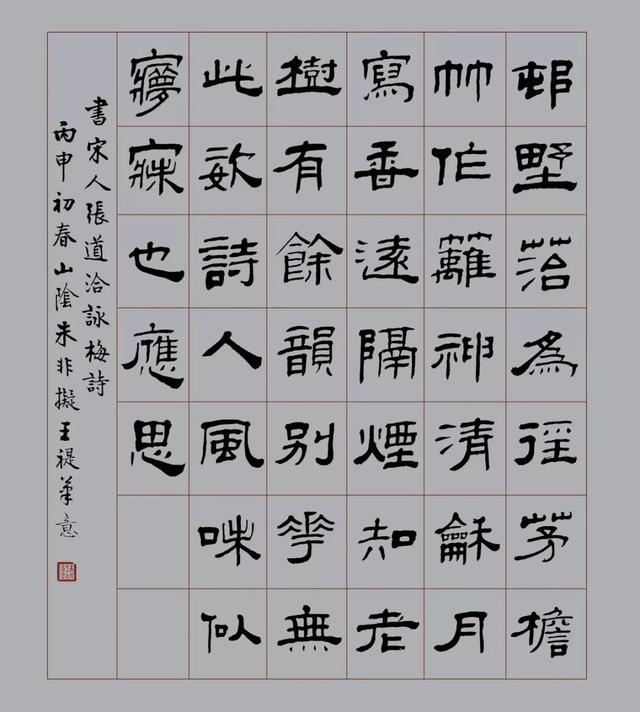 邨墅苔為徑茅檐
竹作籬神清龢月
寫香遠隔煙知老
樹有餘韻別花無
此姿詩人風味似
夢寐也應思
書宋人張道洽詠梅詩
丙申初春山陰朱非擬王禔筆意